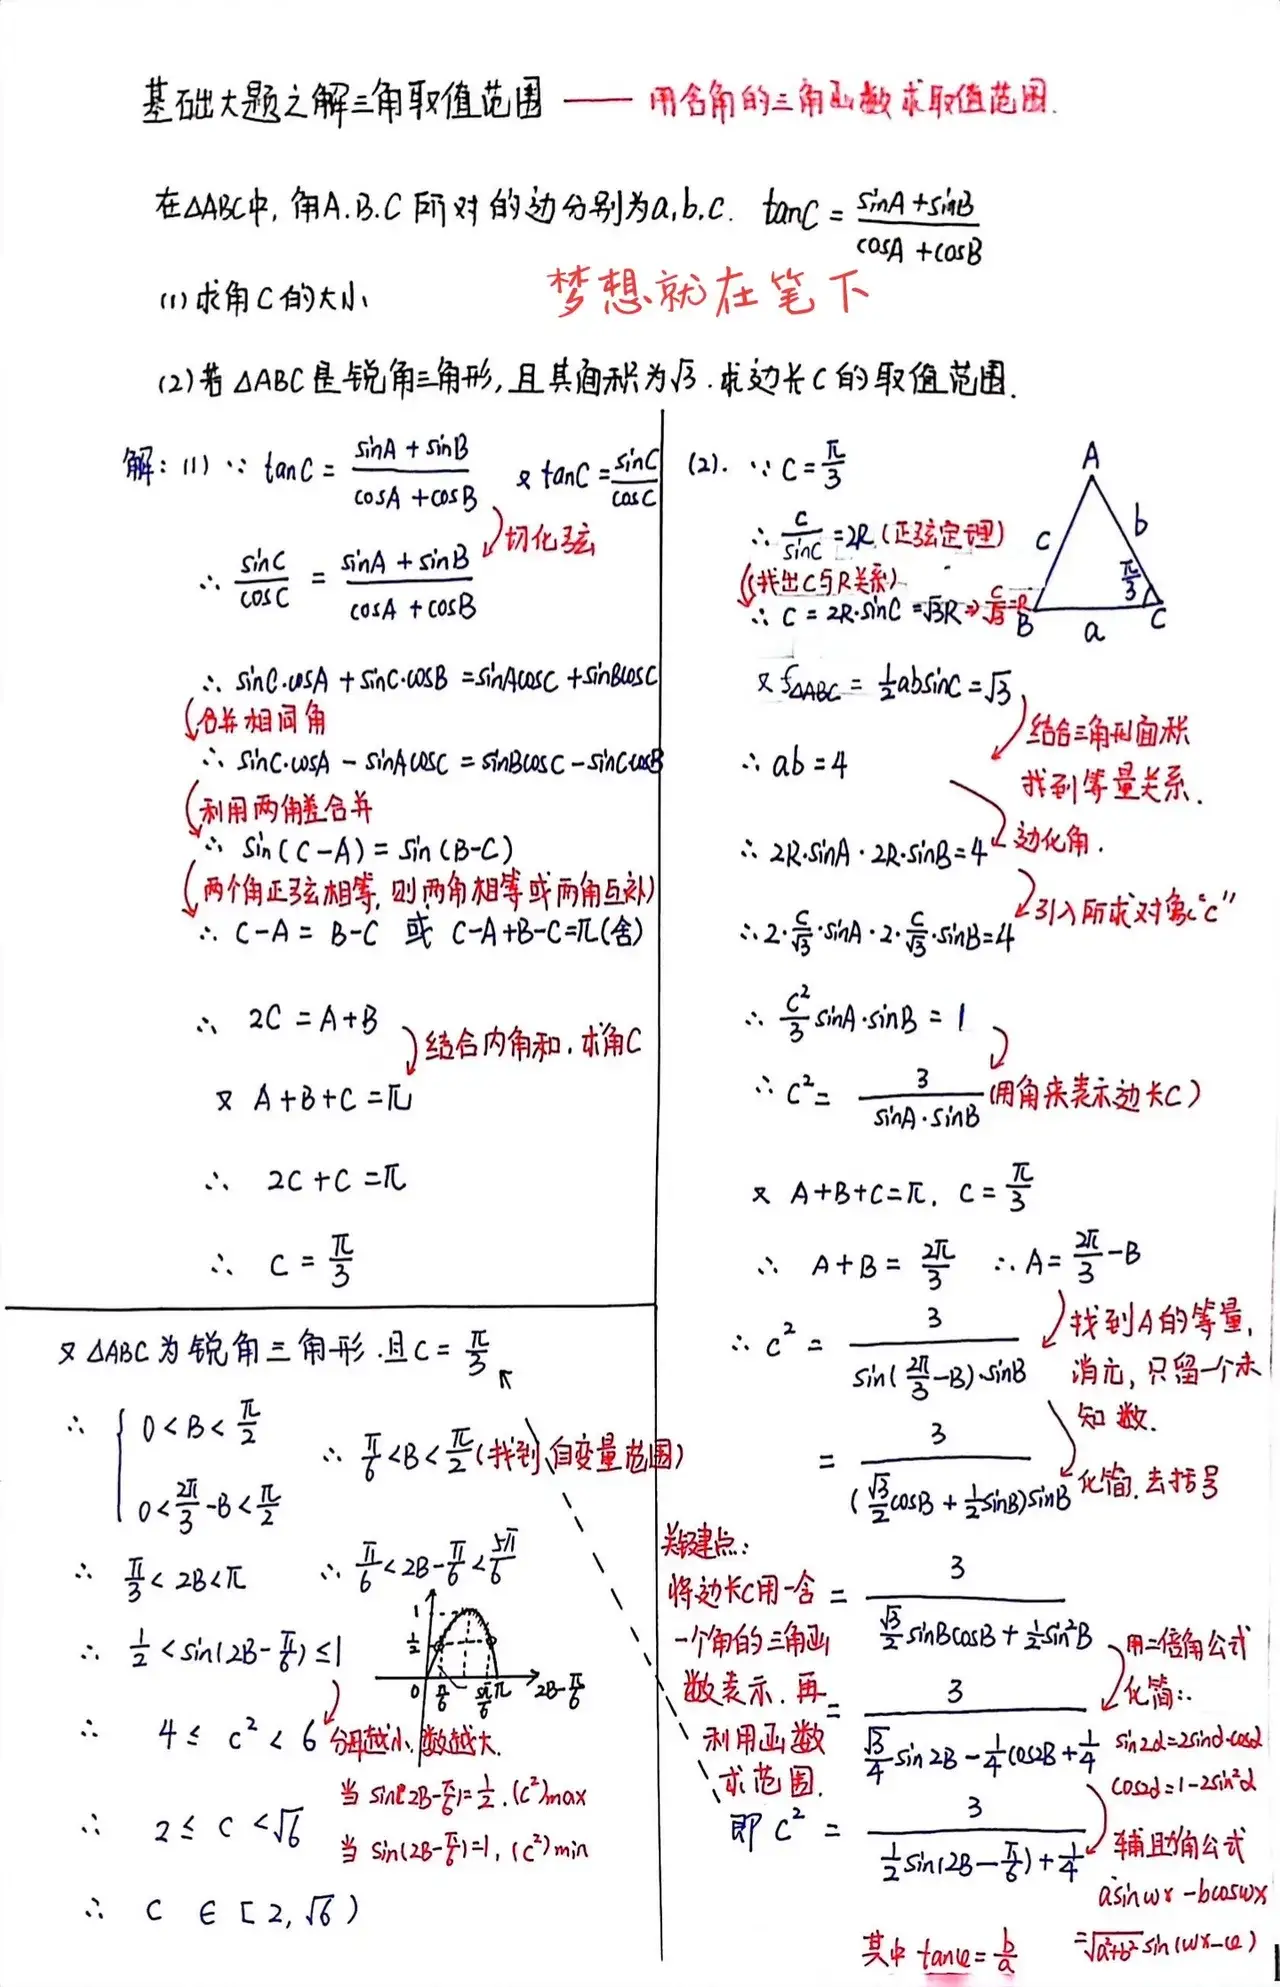 基础大题之解三角取值范围 —— 用含角的三角函数求取值范围.
在△ABC中, 角A.B.C所对的边分别为a,b,c. tanC = (sinA+sinB)/(cosA+cosB)
(1) 求角C的大小
梦想就在笔下
(2) 若△ABC是锐角三角形, 且其面积为√3. 求边长C的取值范围.
解: (1) ∵ tanC = (sinA+sinB)/(cosA+cosB) 又 tanC = sinC/cosC
切化弦
∴ sinC/cosC = (sinA+sinB)/(cosA+cosB)
∴ sinC·cosA + sinC·cosB = sinAcosC + sinBcosC
合并相同角
∴ sinC·cosA − sinAcosC = sinBcosC − sinCcosB
利用两角差合并
∴ sin(C−A) = sin(B−C)
两个角正弦相等, 则两角相等或两角互补)
∴ C−A = B−C 或 C−A+B−C=π(舍)
∴ 2C = A+B
结合内角和. 求角C
又 A+B+C=π
∴ 2C+C=π
∴ C = π/3
(2). ∵ C = π/3
∴ c/sinC = 2R (正弦定理)
(找出C与R关系)
∴ C = 2R·sinC = √3R ⇒ C/√3 = R
A
c
b
π/3
B
a
C
又 S△ABC = ½absinC = √3
结合三角形面积
找到等量关系.
∴ ab = 4
边化角.
∴ 2R·sinA·2R·sinB=4
引入所求对象“c”
∴ 2·C/√3·sinA·2·C/√3·sinB=4
∴ C²/3 sinA·sinB = 1
∴ C² = 3/(sinA·sinB) (用角来表示边长C)
又 A+B+C=π, C = π/3
∴ A+B = 2π/3 ∴ A = 2π/3 −B
找到A的等量,
消元, 只留一个未
知数.
∴ C² = 3/(sin(2π/3 −B)·sinB)
= 3/((√3/2 cosB + ½sinB)sinB)
化简. 去括号
= 3/(√3/2 sinBcosB + ½sin²B)
用二倍角公式
化简:.
sin2α=2sinα·cosα
cos2α=1−2sin²α
= 3/(√3/4 sin2B − ¼cos2B + ¼)
即 C² = 3/(½sin(2B−π/6)+¼)
辅助角公式
asinwx −bcoswx
=√(a²+b²) sin(wx−φ)
其中 tanφ = b/a
关键点:
将边长C用一含
一个角的三角函
数表示. 再
利用函数
求范围.
又 △ABC为锐角三角形. 且C = π/3
∴ { 0<B<π/2
0<2π/3 −B<π/2
∴ π/6<B<π/2 (找到自变量范围)
∴ π/3<2B<π ∴ π/6<2B−π/6<5π/6
∴ ½<sin(2B−π/6)≤1
1
½
0 π/6 5π/6 π 2B−π/6
∴ 4≤ C² <6 分母越小, 数越大.
当 sin(2B−π/6)=½. (C²)max
∴ 2≤ C <√6
当 sin(2B−π/6)=1, (C²)min
∴ C ∈ [2, √6)